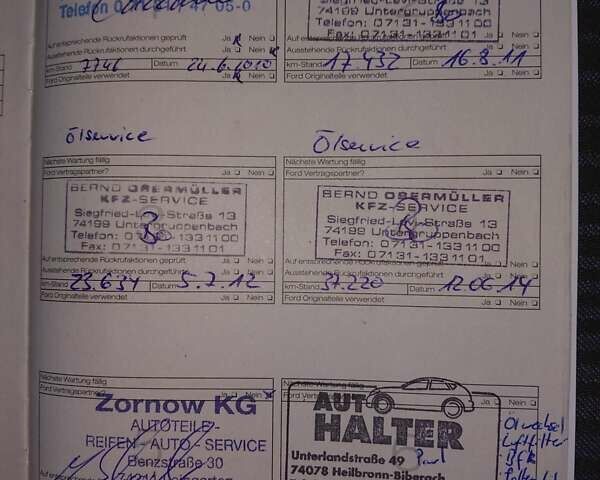 Telefon 0 05-0
Auf entsprechende Rückrufaktionen geprüft Ja Nein
Ausstehende Rückrufaktionen durchgeführt Ja Nein
km-Stand 7746 Datum 24.6.2010
Ford Originalteile verwendet Ja Nein
Siegfried-Levi-Straße 13
74199 Untergruppenbach
Telefon: 07131-1331100
Fax: 07131-1331101
Auf entsprechende Rückrufaktionen geprüft Ja Nein
Ausstehende Rückrufaktionen durchgeführt Ja Nein
km-Stand 17.432 Datum 16.8.11
Ford Originalteile verwendet Ja Nein
Ölservice
Nächste Wartung fällig
Ford Vertragspartner? Ja Nein
BERND OBERMÜLLER
KFZ-SERVICE
Siegfried-Levi-Straße 13
74199 Untergruppenbach
Telefon: 07131-1331100
Fax: 07131-1331101
Auf entsprechende Rückrufaktionen geprüft Ja Nein
Ausstehende Rückrufaktionen durchgeführt Ja Nein
km-Stand 23.634 Datum 5.7.12
Ford Originalteile verwendet Ja Nein
Ölservice
Nächste Wartung fällig
Ford Vertragspartner? Ja Nein
BERND OBERMÜLLER
KFZ-SERVICE
Siegfried-Levi-Straße 13
74199 Untergruppenbach
Telefon: 07131-1331100
Fax: 07131-1331101
Auf entsprechende Rückrufaktionen geprüft Ja Nein
Ausstehende Rückrufaktionen durchgeführt Ja Nein
km-Stand 37.220 Datum 12.06.14
Ford Originalteile verwendet Ja Nein
Nächste Wartung fällig
Ford Vertragspartner? Ja Nein
Zornow KG
AUTOTEILE-
REIFEN-AUTO-SERVICE
Benzstraße 30
Nächste Wartung fällig
Ja Nein
AUTO
HALTER
Unterlandstraße 49
74078 Heilbronn-Biberach
Ölwechsel
Luftfilter